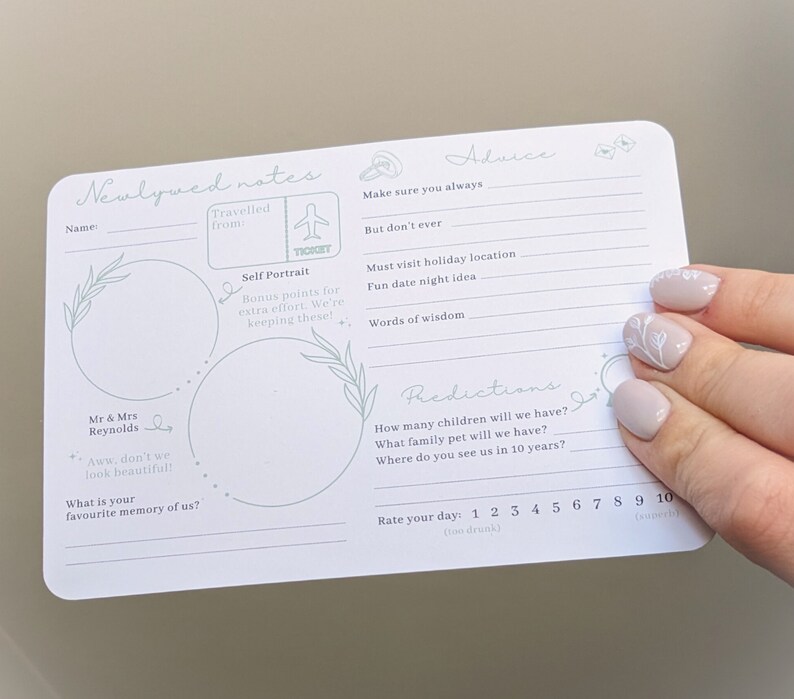 Newlywed notes
Name:
Travelled
from:
TICKET
Self Portrait
Bonus points for
extra effort. We're
keeping these!
Mr & Mrs
Reynolds
Aww, don't we
look beautiful!
What is your
favourite memory of us?
Advice
Make sure you always
But don't ever
Must visit holiday location
Fun date night idea
Words of wisdom
Predictions
How many children will we have?
What family pet will we have?
Where do you see us in 10 years?
Rate your day: 1 2 3 4 5 6 7 8 9 10
(too drunk) (superb)